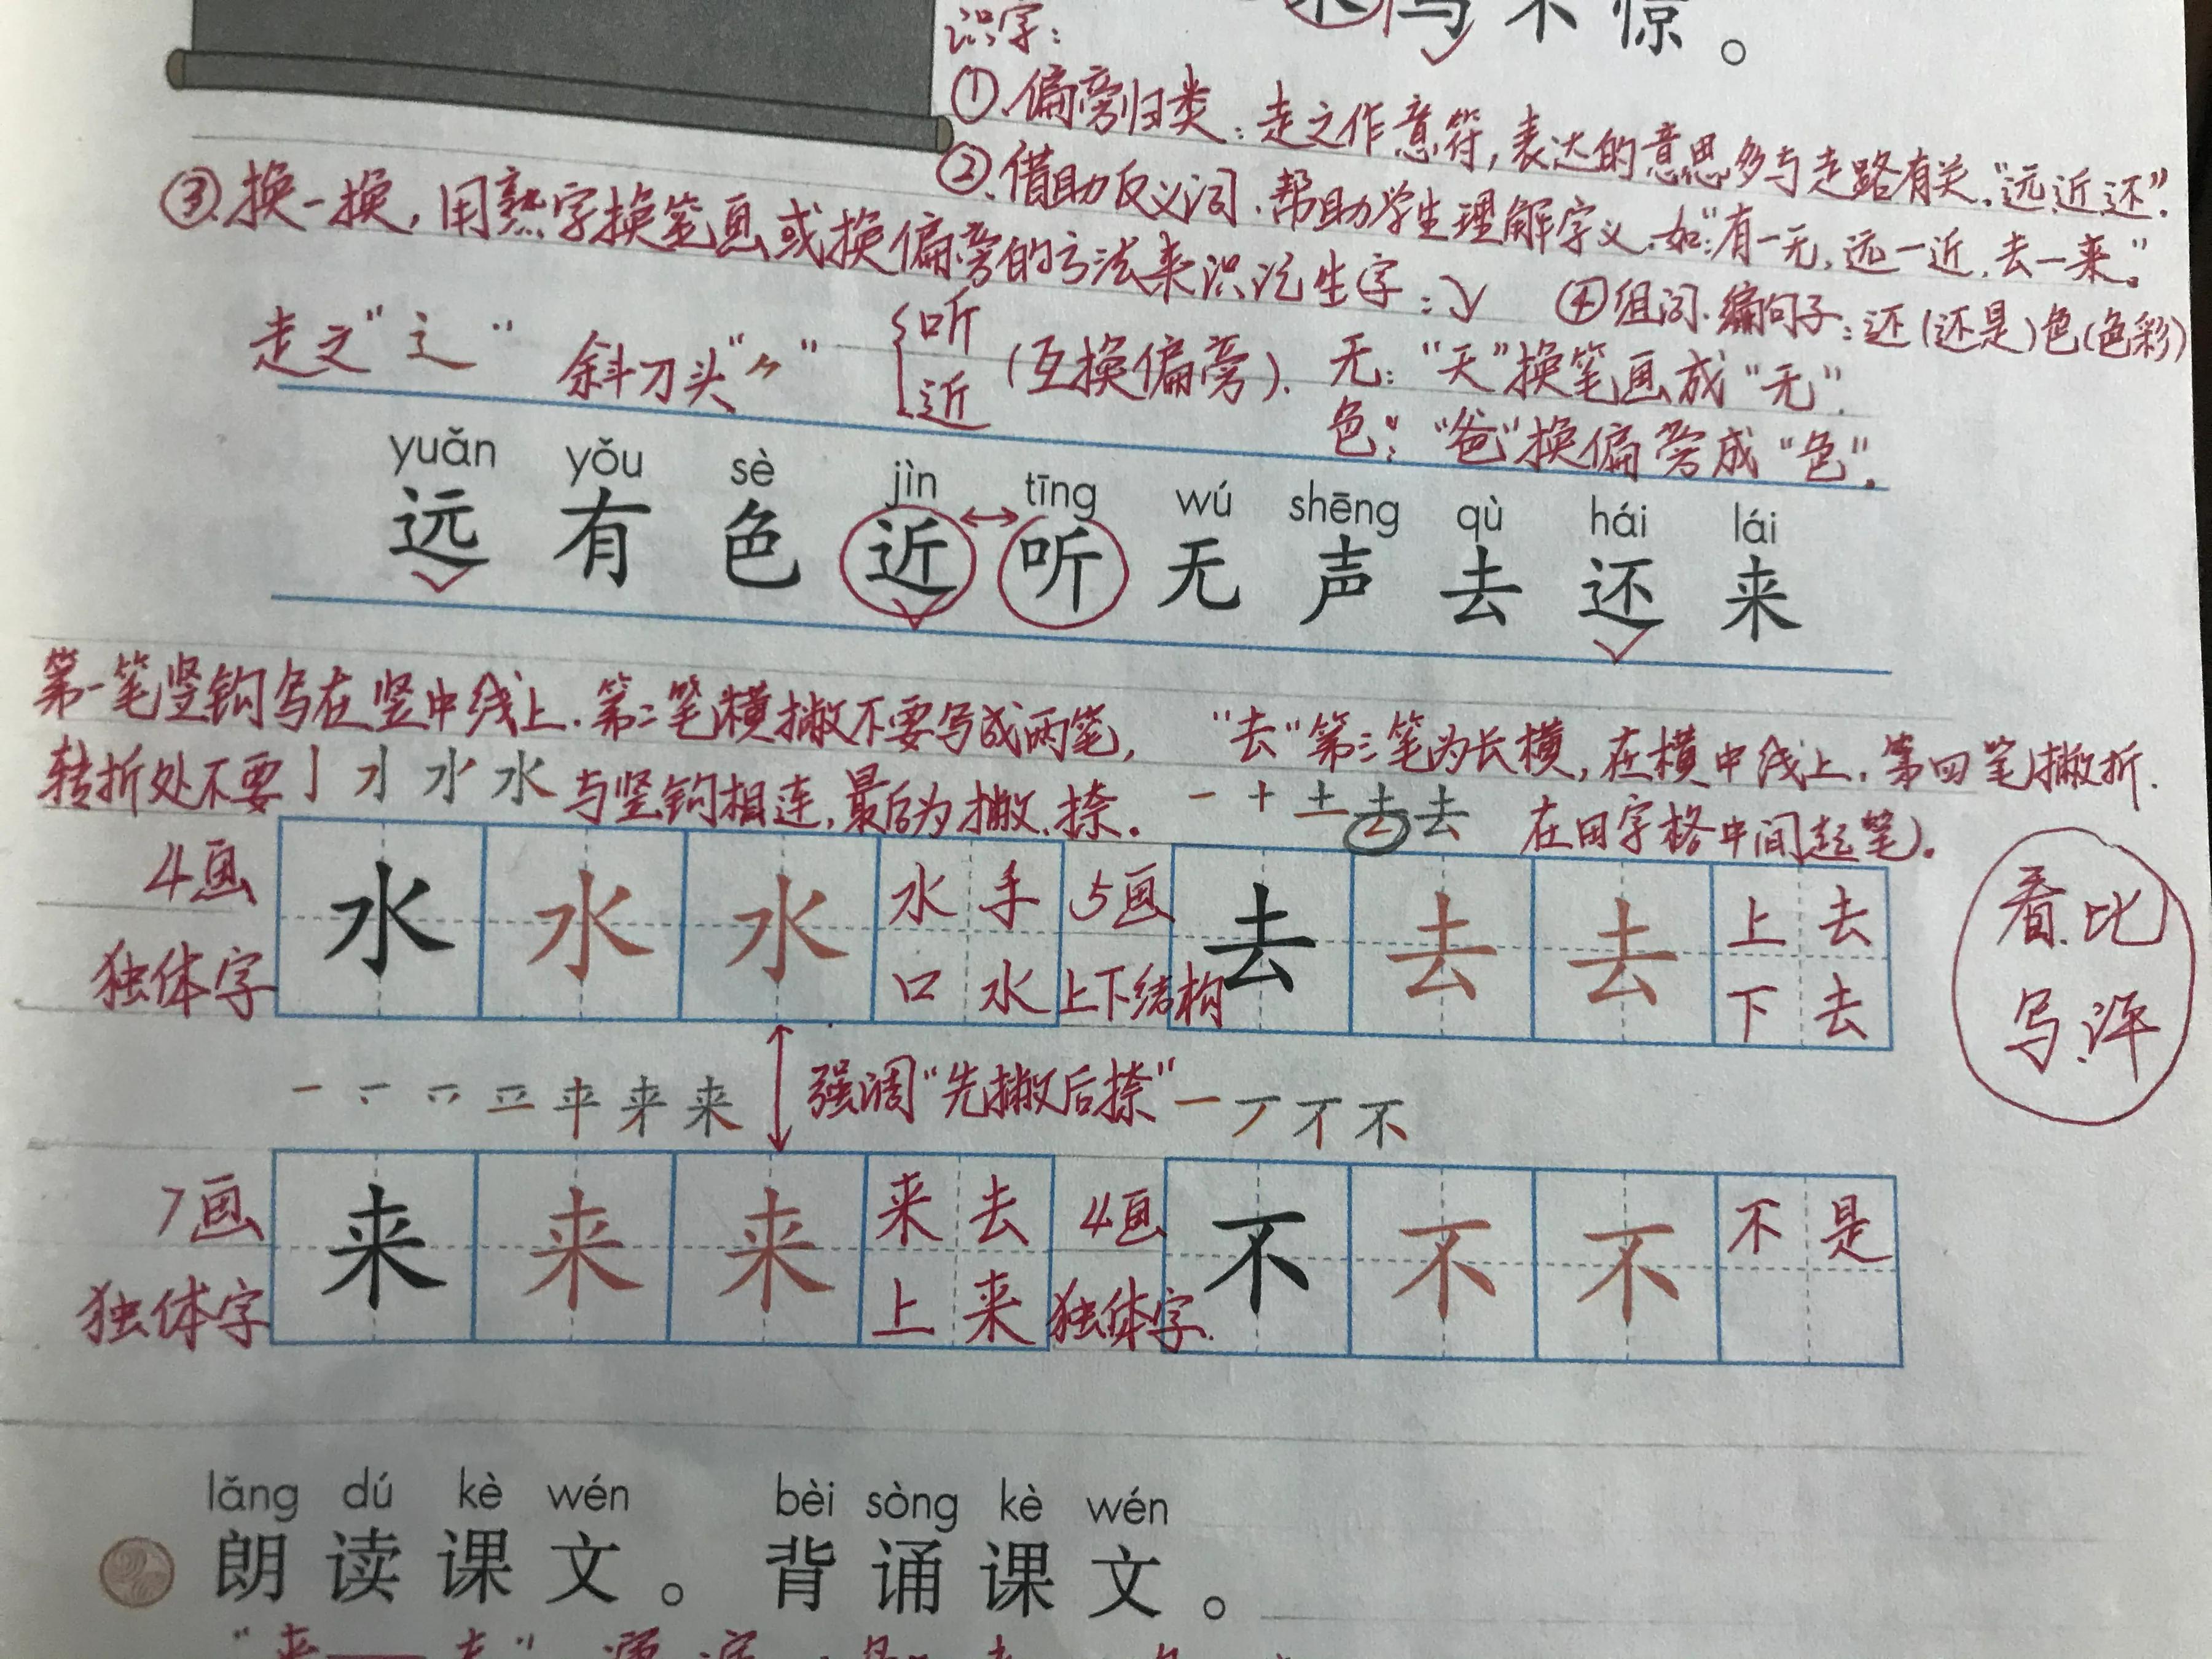 来鸟不惊。
识字：
①.偏旁归类：走之作意符，表达的意思多与走路有关。“远近还”.
②.借助反义词.帮助学生理解字义.如：“有一无，远一近，去一来。”
③.换一换，用熟字换笔画或换偏旁的方法来识记生字：↘
④组词.编句子：还(还是)色(色彩)
走之“辶” 斜刀头“⺈” {听 近 (互换偏旁). 无：“天”换笔画成“无”.
色：“爸”换偏旁成“色”.
yuǎn yǒu sè jìn tīng wú shēng qù hái lái
远 有 色 近 ↔ 听 无 声 去 还 来
第一笔竖钩写在竖中线上.第二笔横撇不要写成两笔，
转折处不要 亅 水 与竖钩相连，最后为撇.捺.
“去”第三笔为长横，在横中线上.第四笔撇折.
一 十 土 去 去 在田字格中间起笔.
4画 水 水 水 水 手 5画 去 去 去 上 去
独体字 口 水 上下结构 下 去
看.比
写.评
一 平 来 来 强调“先撇后捺” 一 丆 不 不
7画 来 来 来 来 去 4画 不 不 不 不 是
独体字 上 来 独体字.
lǎng dú kè wén bèi sòng kè wén
朗读课文。背诵课文。